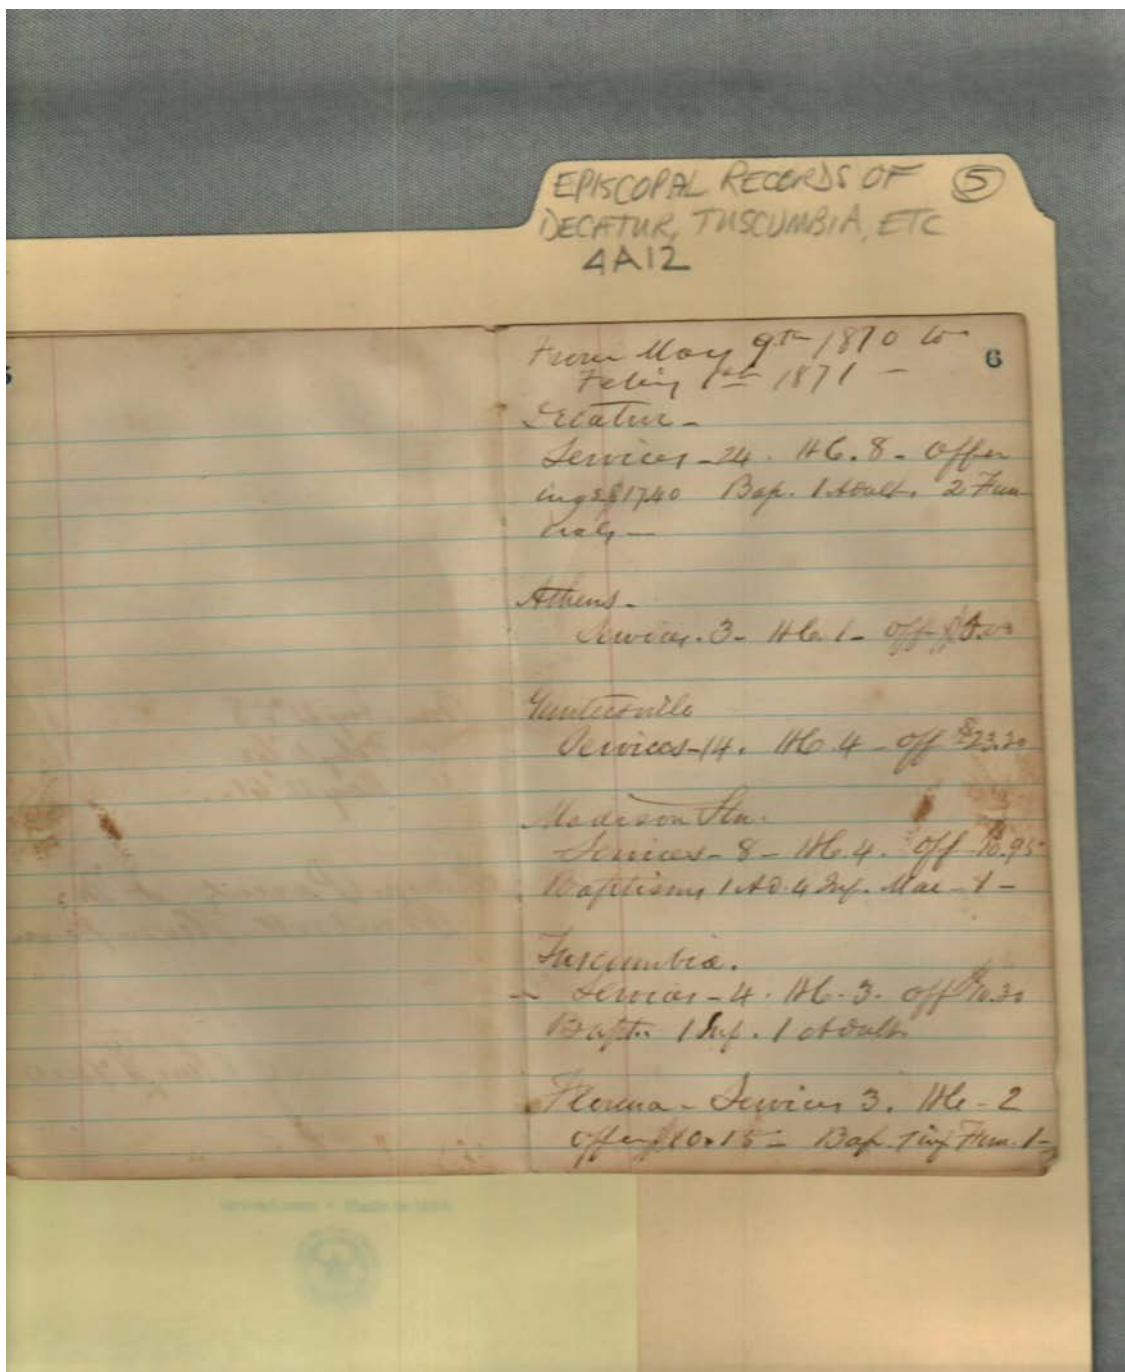 EPISCOPAL RECORDS OF 5
DECATUR, TUSCUMBIA, ETC
4A12
6
From May 9th 1870 to
1871 —
Decatur —
Services — 24 . H.C. 8 — Offer
ings $17.40 Bap. 1 Adult. 2 Fun
erals —
Athens —
Services . 3 — H.C. 1 — Off
Guntersville
Services — 14 . H.C. 4 — Off $23.30
Madison Stn.
Services — 8 — H.C. 4 . Off 10.95
Baptisms 1 Ad. 4 Inf. Mar — 1 —
Tuscumbia .
— Services — 4 . H.C. 3 . Off 10.30
Bapt. 1 Inf . 1 Adult
Services 3 . H.C. — 2
10.15 — Bap. 1 inf Fun. 1 —